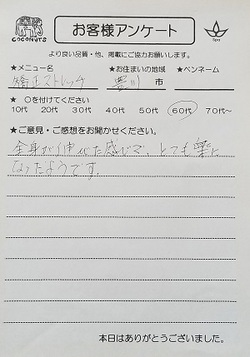 COCONUTS
お客様アンケート
より良い品質・他、掲載にご協力お願いします。
★メニュー名 ★お住まいの地域 ★ペンネーム
矯正ストレッチ 豊川 市
★ ○を付けてください
10代 20代 30代 40代 50代 60代 70代~
★ご意見・ご感想をお聞かせください。
全身が伸びた感じで、とても楽に
なったようです。
本日はありがとうございました。